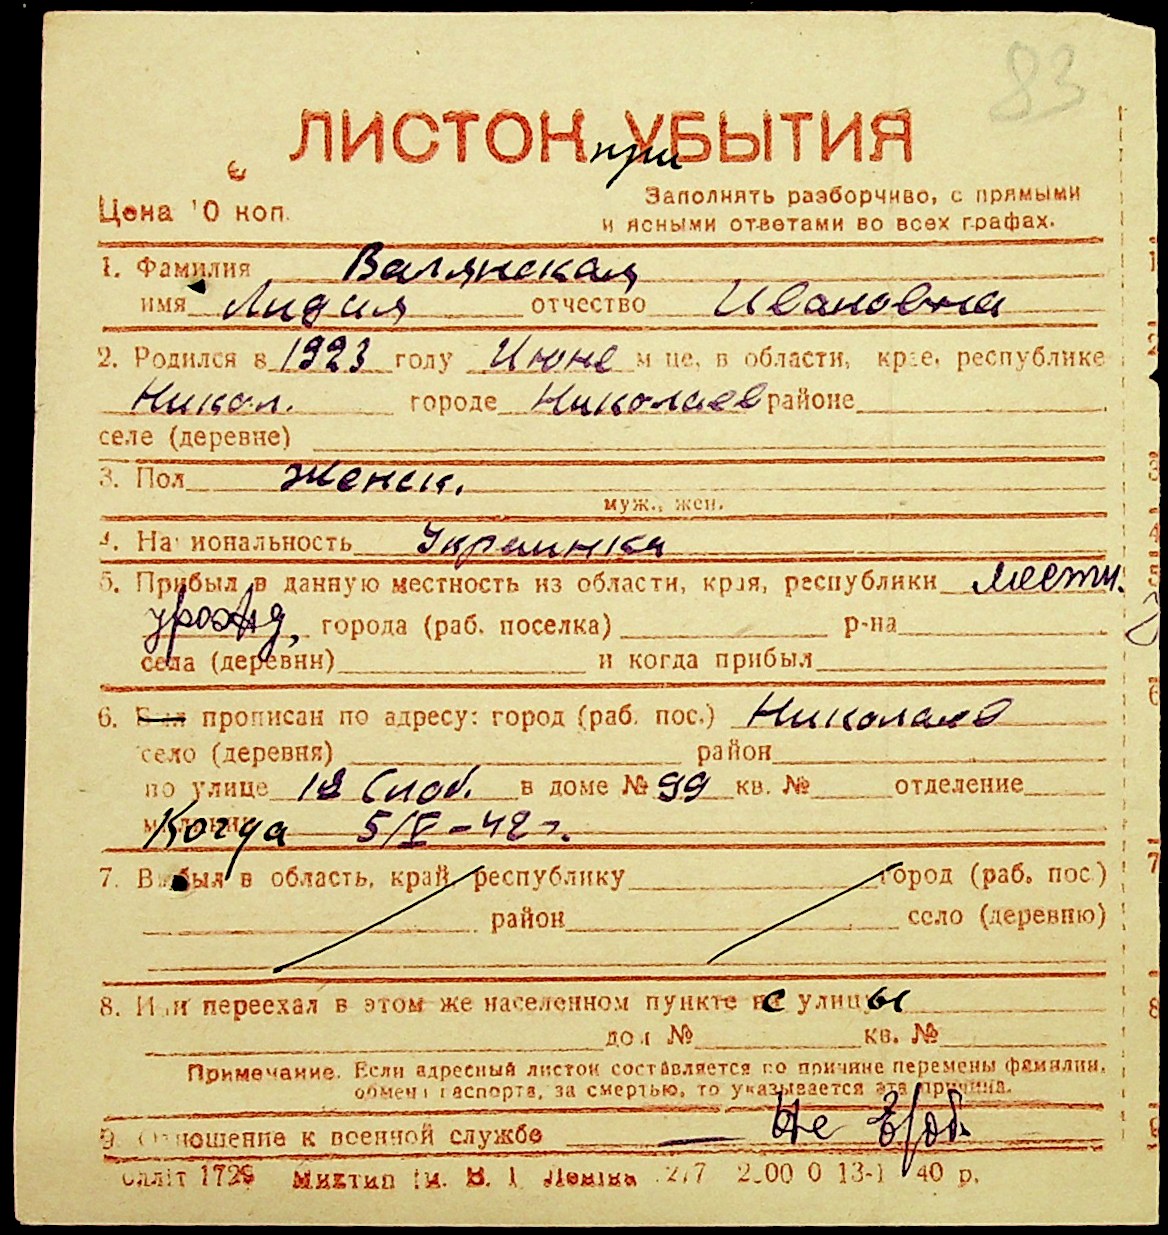 83
ЛИСТОК УБЫТИЯ
при
Цена 10 коп.
Заполнять разборчиво, с прямыми
и ясными ответами во всех графах.
1. Фамилия Валянская
имя Лидия отчество Ивановна
2. Родился в 1923 году Июне м-це, в области, крае, республике
Никол. городе Николаев районе
селе (деревне)
3. Пол женск.
муж., жен.
4. Национальность Украинка
5. Прибыл в данную местность из области, края, республики местн.
урожд, города (раб. поселка) р-на
села (деревни) и когда прибыл
6. Был прописан по адресу: город (раб. пос.) Николаев
село (деревня) район
по улице 12 Слоб. в доме № 99 кв. № отделение
Когда 5/V-42 г.
7. Выбыл в область, край, республику город (раб. пос.)
район село (деревню)
8. Или переехал в этом же населенном пункте с улицы
дом № кв. №
Примечание. Если адресный листок составляется по причине перемены фамилии,
обмена паспорта, за смертью, то указывается эта причина.
9. Отношение к военной службе — Не
Міктип ім. В. І. Леніна 40 р.